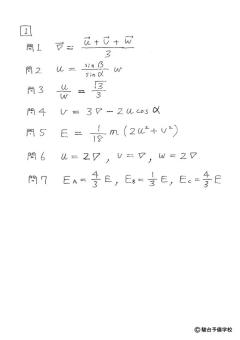 1
問1 V⃗ = (u⃗ + v⃗ + w⃗)/3
問2 u = (sin β / sin α) w
問3 u/w = √3/3
問4 v = 3V − 2u cos α
問5 E = 1/18 m (2u² + v²)
問6 u = 2V , v = V , w = 2V
問7 E_A = 4/3 E , E_B = 1/3 E , E_C = 4/3 E
©駿台予備学校